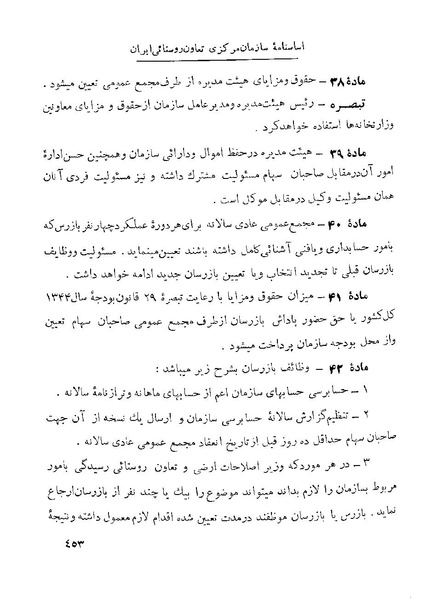 اساسنامهٔ سازمان مرکزی تعاون روستائی ایران
مادهٔ ۳۸ – حقوق و مزایای هیئت مدیره از طرف مجمع عمومی تعیین میشود .
تبصره – رئیس هیئت مدیره و مدیر عامل سازمان از حقوق و مزایای معاونین
وزارتخانه‌ها استفاده خواهد کرد .
مادهٔ ۳۹ – هیئت مدیره در حفظ اموال و دارائی سازمان و همچنین حسن ادارهٔ
امور آن در مقابل صاحبان سهام مسئولیت مشترك داشته و نیز مسئولیت فردی آنان
همان مسئولیت وکیل در مقابل موکل است .
مادهٔ ۴۰ – مجمع عمومی عادی سالانه برای هر دورهٔ عملکرد چهار نفر بازرس که
بامور حسابداری و یافنی آشنائی کامل داشته باشند تعیین مینماید . مسئولیت و وظایف
بازرسان قبلی تا تجدید انتخاب و یا تعیین بازرسان جدید ادامه خواهد داشت .
مادهٔ ۴۱ – میزان حقوق و مزایا با رعایت تبصرهٔ ۲۹ قانون بودجهٔ سال ۱۳۴۴
کل کشور یا حق حضور یا پاداش بازرسان از طرف مجمع عمومی صاحبان سهام تعیین
و از محل بودجه سازمان پرداخت میشود .
مادهٔ ۴۲ – وظائف بازرسان بشرح زیر میباشد :
۱ – حسابرسی حسابهای سازمان اعم از حسابهای ماهانه و ترازنامهٔ سالانه .
۲ – تنظیم گزارش سالانهٔ حسابرسی سازمان و ارسال یك نسخه از آن جهت
صاحبان سهام حداقل ده روز قبل از تاریخ انعقاد مجمع عمومی عادی سالانه .
۳ – در هر مورد که وزیر اصلاحات ارضی و تعاون روستائی رسیدگی بامور
مربوط بسازمان را لازم بداند میتواند موضوع را بیك یا چند نفر از بازرسان ارجاع
نماید . بازرس یا بازرسان موظفند در مدت تعیین شده اقدام لازم معمول داشته و نتیجهٔ
۴۵۳